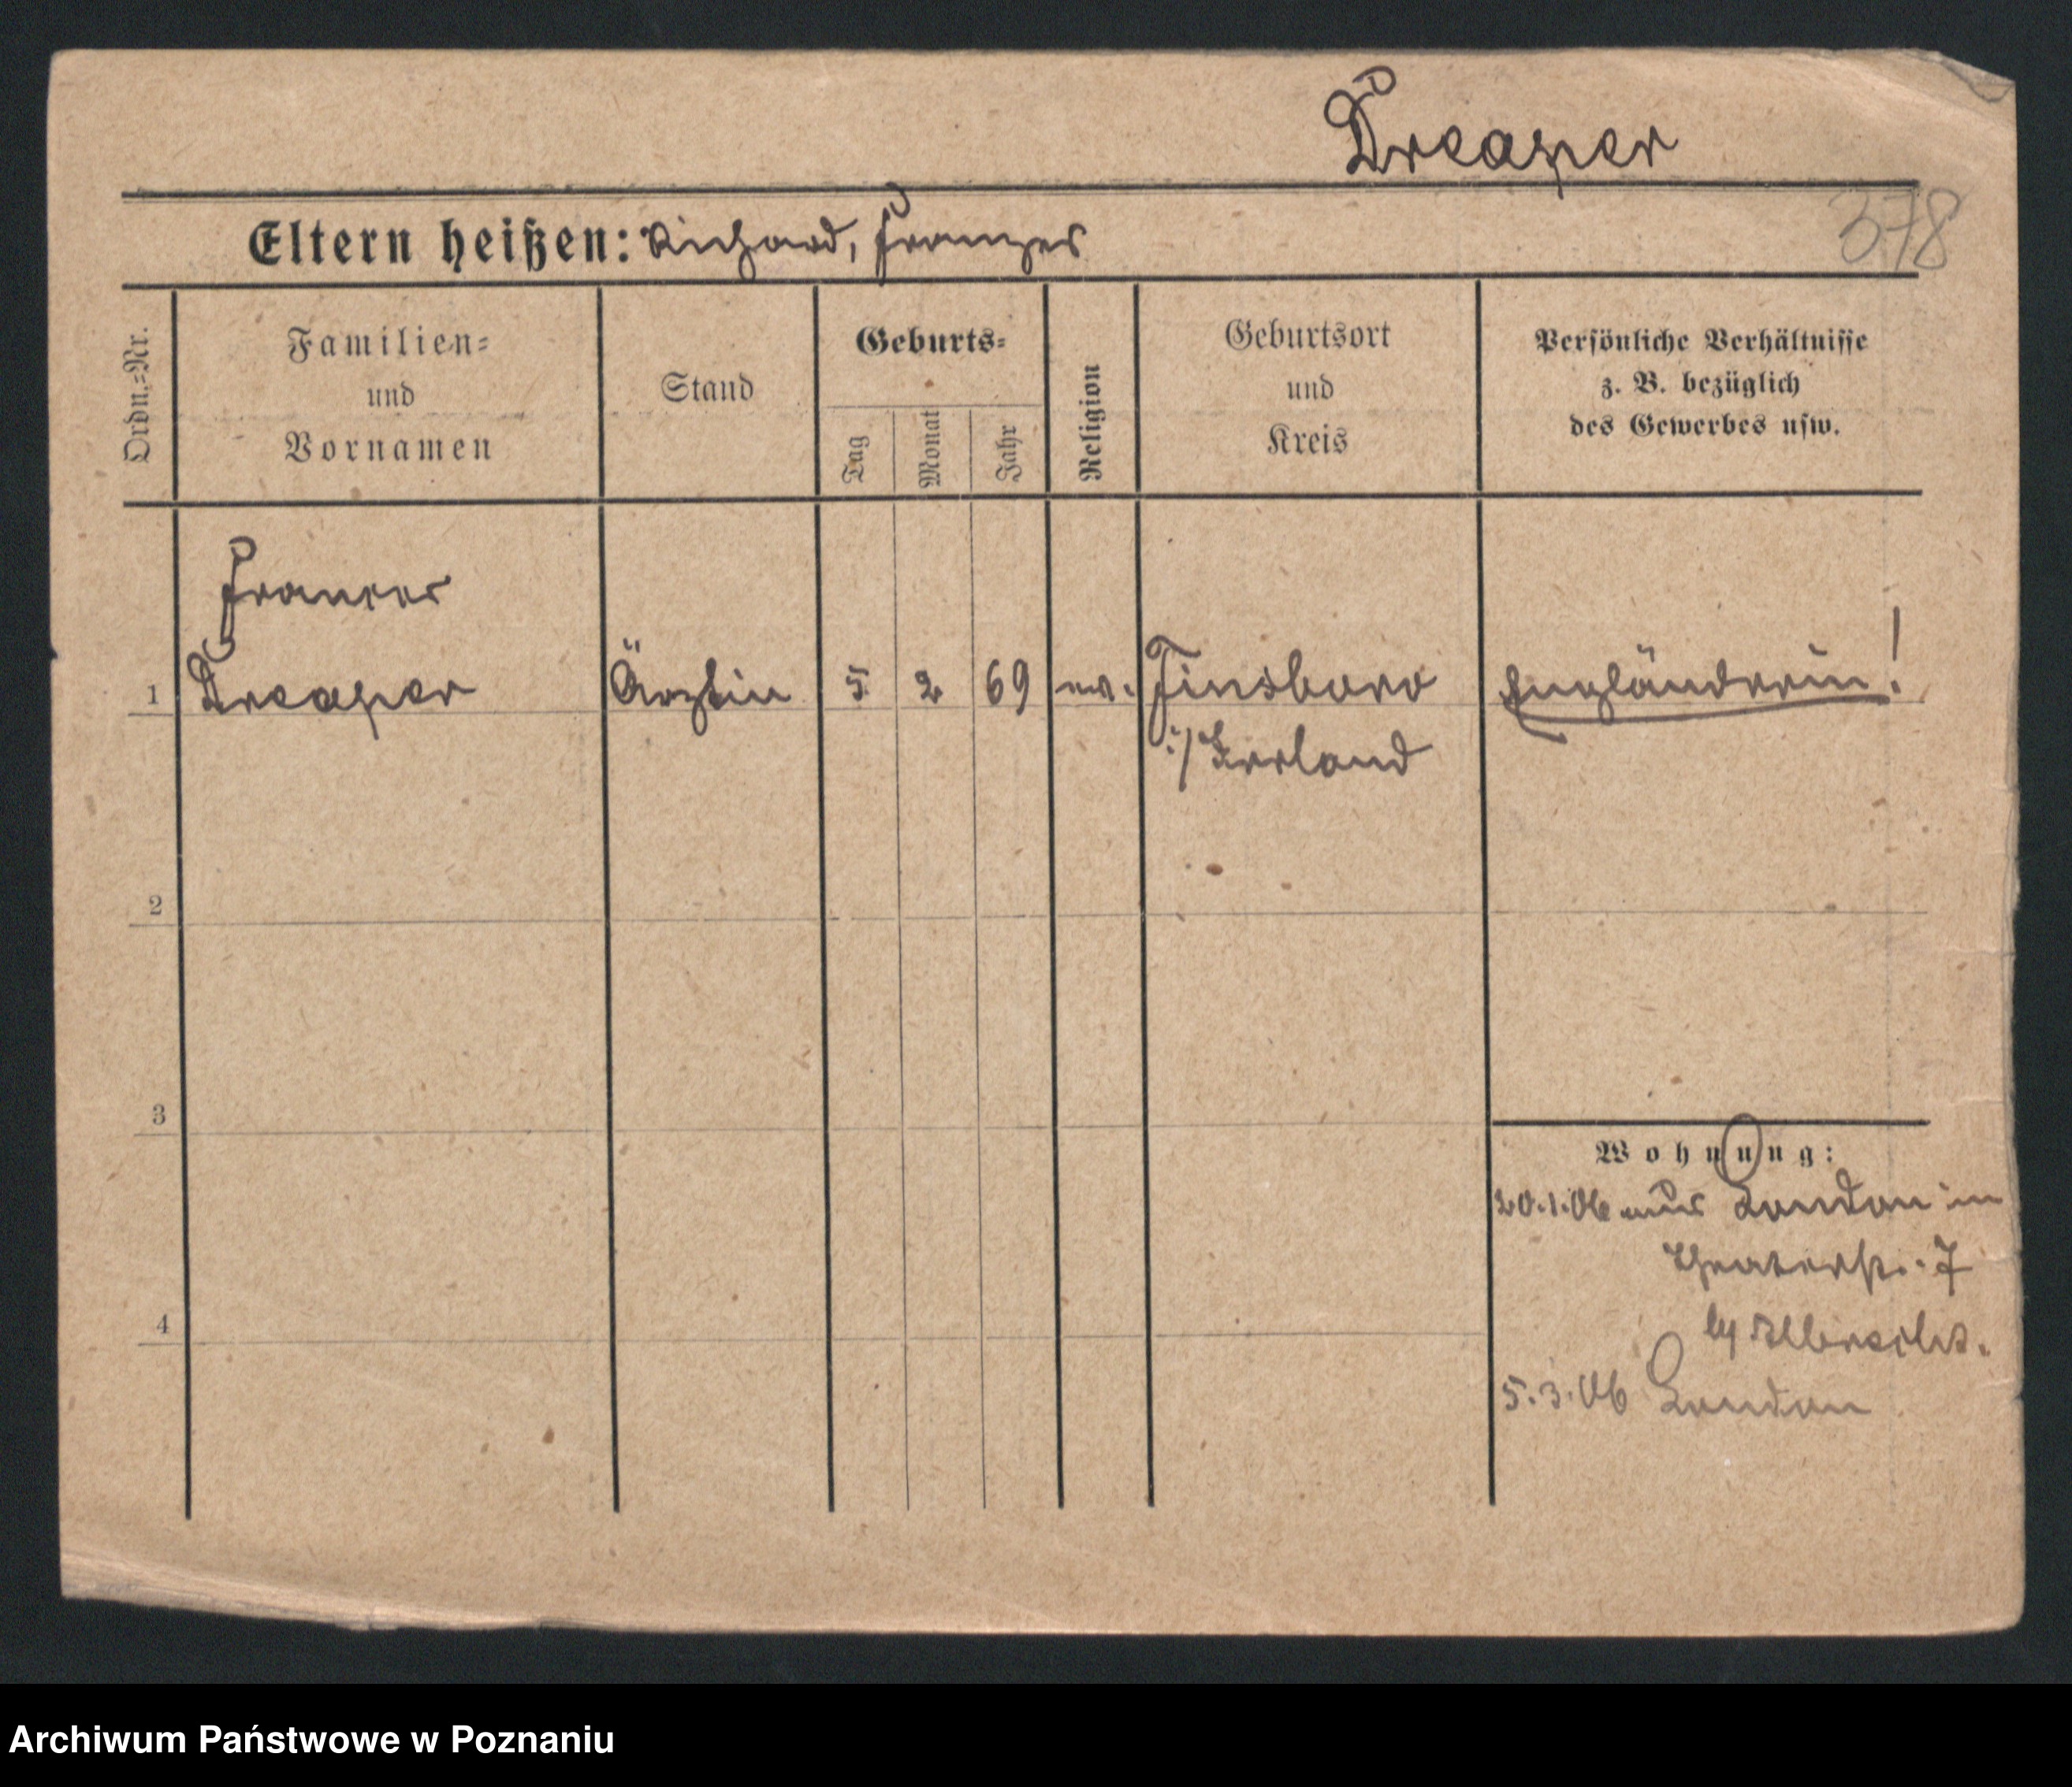 Dreaper
Eltern heißen: Richard, Franzes
378
Ordn.=Nr.
Familien=
und
Vornamen
Stand
Geburts=
Tag
Monat
Jahr
Religion
Geburtsort
und
Kreis
Persönliche Verhältnisse
z. B. bezüglich
des Gewerbes usw.
Frances
1 Dreaper Ärztin 5 2 69 ev. Finsboro Engländerin!
i/Irrland
2
3
4
Wohnung:
20.1.06 aus London in
Theaterstr. 7
by Albrecht.
5.3.06 London
Archiwum Państwowe w Poznaniu